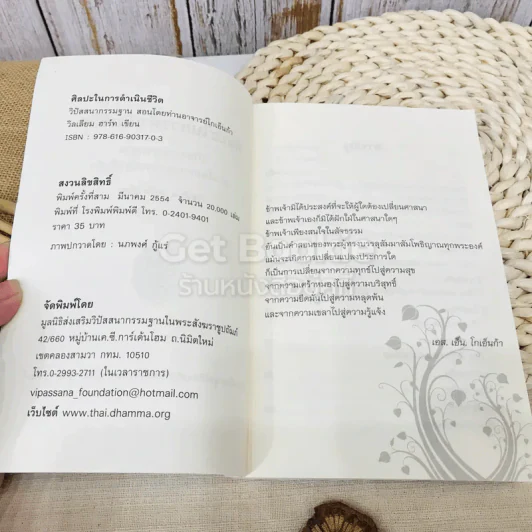 ศิลปะในการดำเนินชีวิต
วิปัสสนากรรมฐาน สอนโดยท่านอาจารย์โกเอ็นก้า
วิลเลียม ฮาร์ท เขียน
ISBN : 978-616-90317-0-3
สงวนลิขสิทธิ์
พิมพ์ครั้งที่สาม มีนาคม 2554 จำนวน 20,000 เล่ม
พิมพ์ที่ โรงพิมพ์พิมพ์ดี โทร. 0-2401-9401
ราคา 35 บาท
ภาพปกวาดโดย : นภพงศ์ กู้แร่
จัดพิมพ์โดย
มูลนิธิส่งเสริมวิปัสสนากรรมฐานในพระสังฆราชูปถัมภ์
42/660 หมู่บ้านเค.ซี.การ์เด้นโฮม ถ.นิมิตใหม่
เขตคลองสามวา กทม. 10510
โทร.0-2993-2711 (ในเวลาราชการ)
vipassana_foundation@hotmail.com
เว็บไซต์ www.thai.dhamma.org
ข้าพเจ้ามิได้ประสงค์ที่จะให้ผู้ใดต้องเปลี่ยนศาสนา
และข้าพเจ้าเองก็มิได้ฝักใฝ่ในศาสนาใดๆ
ข้าพเจ้าเพียงสนใจในสัจธรรม
อันเป็นคำสอนของพระผู้ทรงบรรลุสัมมาสัมโพธิญาณทุกพระองค์
แม้นจะเกิดการเปลี่ยนแปลงประการใด
ก็เป็นการเปลี่ยนจากความทุกข์ไปสู่ความสุข
จากความเศร้าหมองไปสู่ความบริสุทธิ์
จากความยึดมั่นไปสู่ความหลุดพ้น
และจากความเขลาไปสู่ความรู้แจ้ง
เอส. เอ็น. โกเอ็นก้า
Get B
ร้านหนังสือ